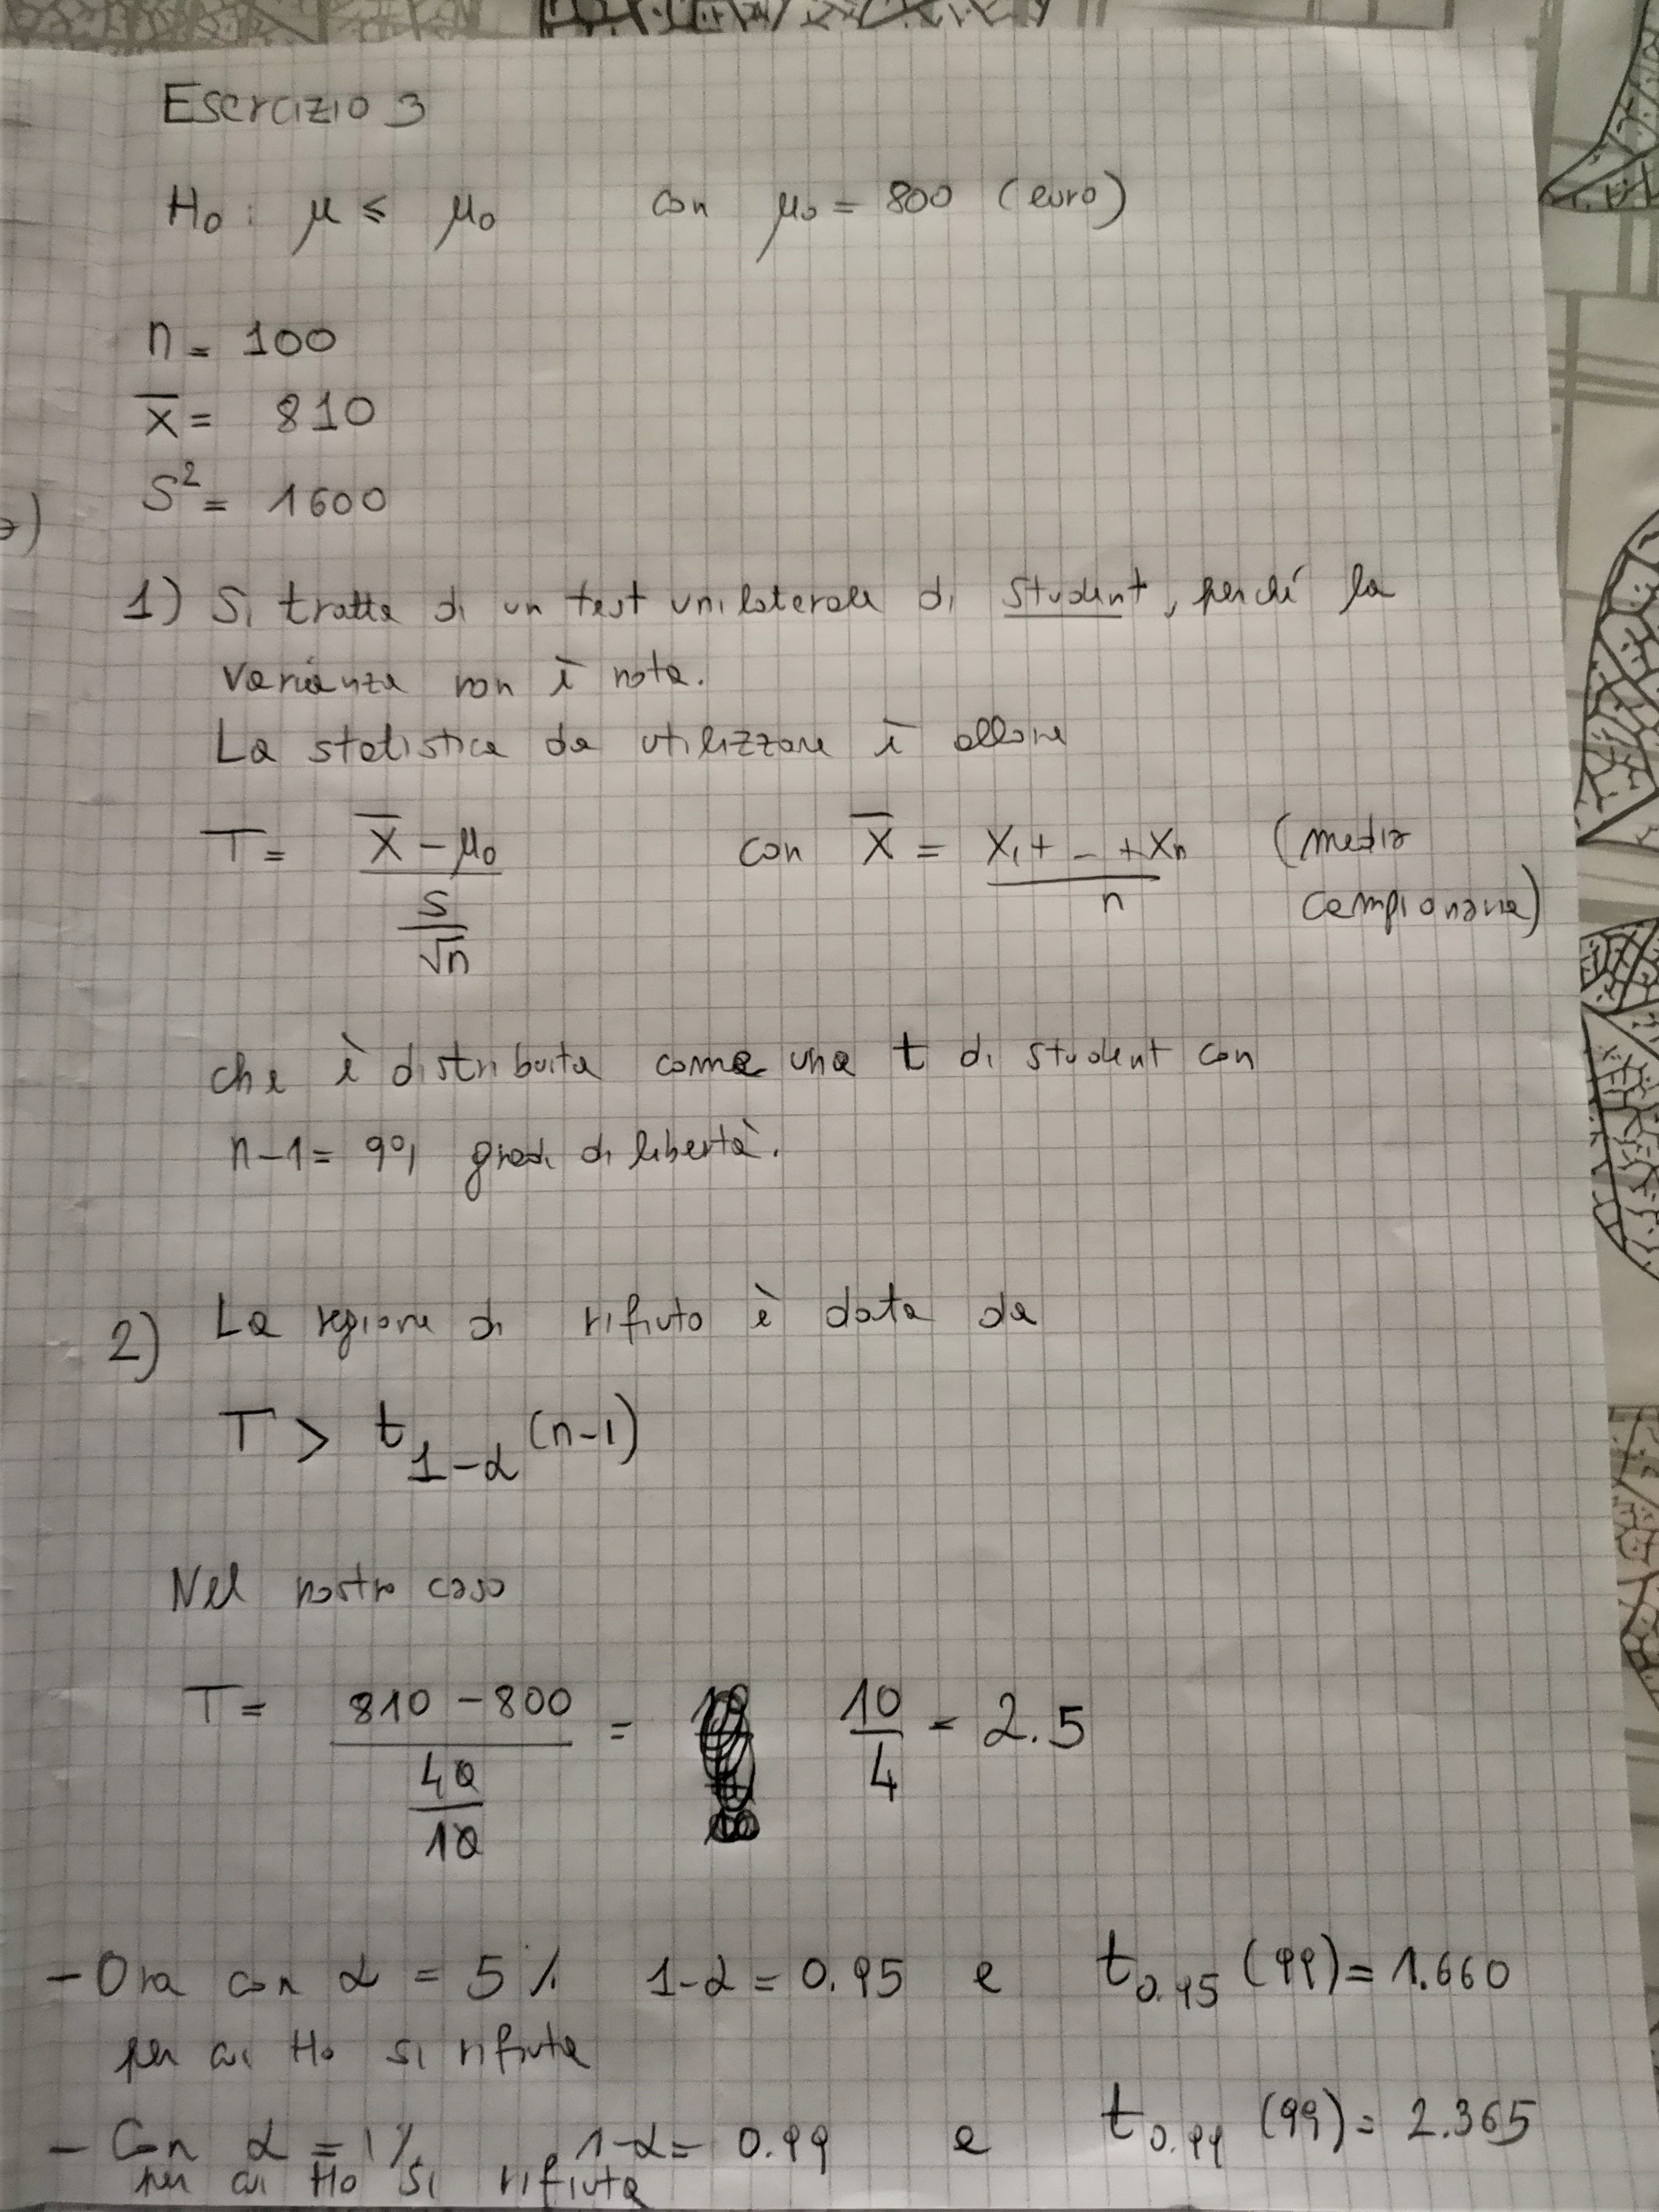 Esercizio 3
H₀ : μ ≤ μ₀ con μ₀ = 800 (euro)
n = 100
X̄ = 810
S² = 1600
1) Si tratta di un test unilaterale di Student, perché la
varianza non è nota.
La statistica da utilizzare è allora
T = (X̄ - μ₀) / (S/√n) con X̄ = (X₁ + - + Xₙ) / n (media
campionaria)
che è distribuita come una t di student con
n-1 = 99 gradi di libertà.
2) La regione di rifiuto è data da
T > t₁₋α (n-1)
Nel nostro caso
T = (810 - 800) / (40/10) = 10/4 = 2.5
- Ora con α = 5% 1-α = 0.95 e t₀.₉₅ (99) = 1.660
per cui H₀ si rifiuta
- Con α = 1% 1-α = 0.99 e t₀.₉₉ (99) = 2.365
per cui H₀ si rifiuta